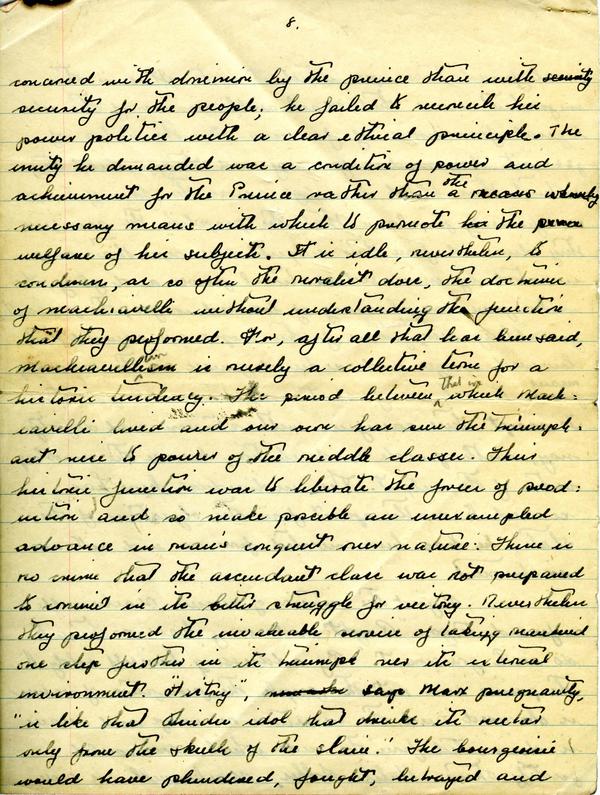 8.
concerned with dominion by the prince than with security
security for the people; he failed to reconcile his
power politics with a clear ethical principle. The
unity he demanded was a condition of power and
achievement for the Prince rather than the a means whereby
necessary means with which to promote his the
welfare of his subjects. It is idle, nevertheless, to
condemn, as so often the moralist does, the doctrines
of machiavelli without understanding the function
that they performed. For, after all that has been said,
Machiavellianism is merely a collective term for a
historic tendency. The period between that in which Mach-
iavelli lived and our own has seen the triumph-
ant rise to power of the middle classes. Their
historic function was to liberate the forces of prod-
uction and so make possible an unexampled
advance in man's conquest over nature. There is
no crime that the ascendant class was not prepared
to commit in its bitter struggle for victory. Nevertheless
they performed the invaluable service of taking mankind
one step further in its triumph over its external
environment. "History", says Marx pregnantly,
"is like that Hindu idol that drinks its nectar
only from the skulls of the slain." The bourgeoisie
would have plundered, fought, betrayed and